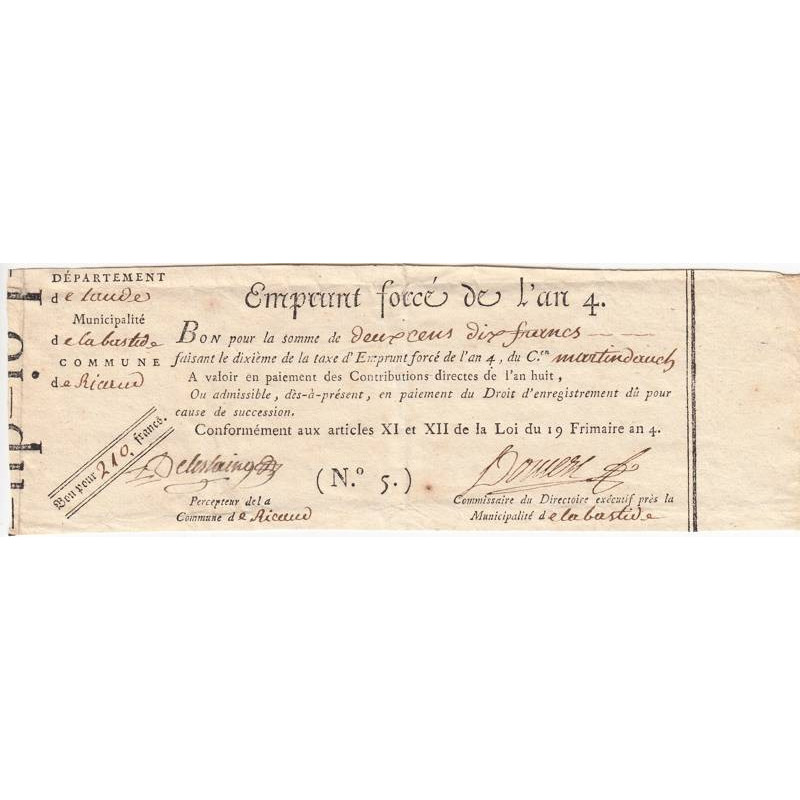 DÉPARTEMENT
de laude
Municipalité
de labastide
COMMUNE
de Ricaud
Emprunt forcé de l'an 4.
BON pour la somme de deux cens dix francs
faisant le dixième de la taxe d'Emprunt forcé de l'an 4, du C.en martindauch
A valoir en paiement des Contributions directes de l'an huit,
Ou admissible, dès-à-présent, en paiement du Droit d'enregistrement dû pour
cause de succession.
Conformément aux articles XI et XII de la Loi du 19 Frimaire an 4.
Bon pour 210, francs.
(N.o 5.)
Percepteur de la
Commune de Ricaud
Commissaire du Directoire exécutif près la
Municipalité de labastide